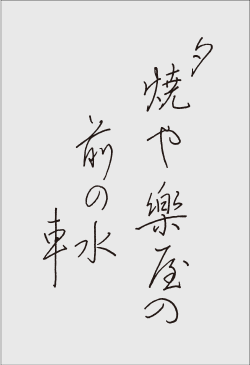 夕焼や樂屋の
前の水車